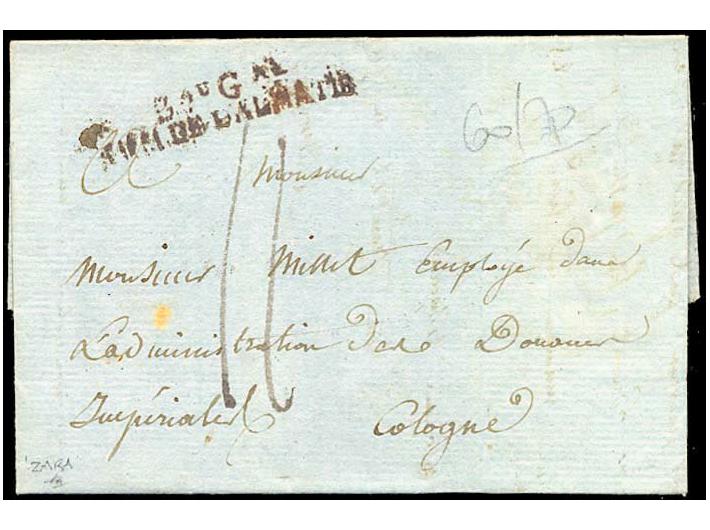 Bau G al
ARM. DE DALMATIE
60/70
A Monsieur
Monsieur Millet Employé dans
L'administration des Douanes
Impériales
Cologne
11
ZARA